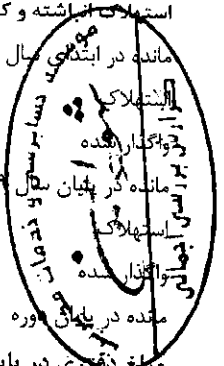 استهلاک انباشته و ک
مانده در ابتدای سال
استهلاک
واگذار شده
مانده در پایان سال
استهلاک
واگذار شده
مانده در پایان دوره
مبلغ دفتری در پایا
موسسه حسابرسی و خدمات
گزارش بررسی اجمالی